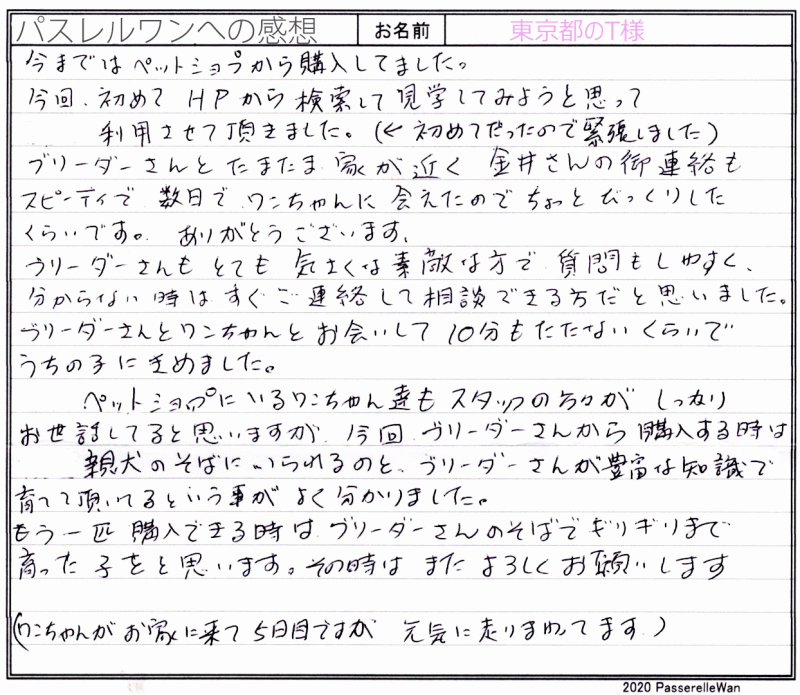 パスレルワンへの感想 お名前 東京都のT様
今まではペットショプから購入してました。
今回、初めて HPから検索して見学してみようと思って
利用させて頂きました。(← 初めてだったので緊張しました)
ブリーダーさんと たまたま 家が近く 金井さんの御連絡も
スピーディで 数日で ワンちゃんに 会えたので ちょっと びっくりした
くらいです。 ありがとうございます。
ブリーダーさんも とても 気さくな素敵な方で、質問もしやすく、
分からない時は すぐご連絡して相談できる方だと思いました。
ブリーダーさんとワンちゃんと お会いして 10分もたたないくらいで
うちの子にきめました。
ペットショップにいるワンちゃん達も スタッフの方々が しっかり
お世話してると思いますが、今回、ブリーダーさんから購入する時は
親犬のそばにいられるのと、ブリーダーさんが豊富な知識で
育てて頂いてるという事が よく分かりました。
もう一匹 購入できる時は ブリーダーさんのそばでギリギリまで
育った 子をと思います。その時は また よろしくお願いします
(ワンちゃんが お家に来て 5日目ですが 元気に走りまわってます。)
2020 PasserelleWan